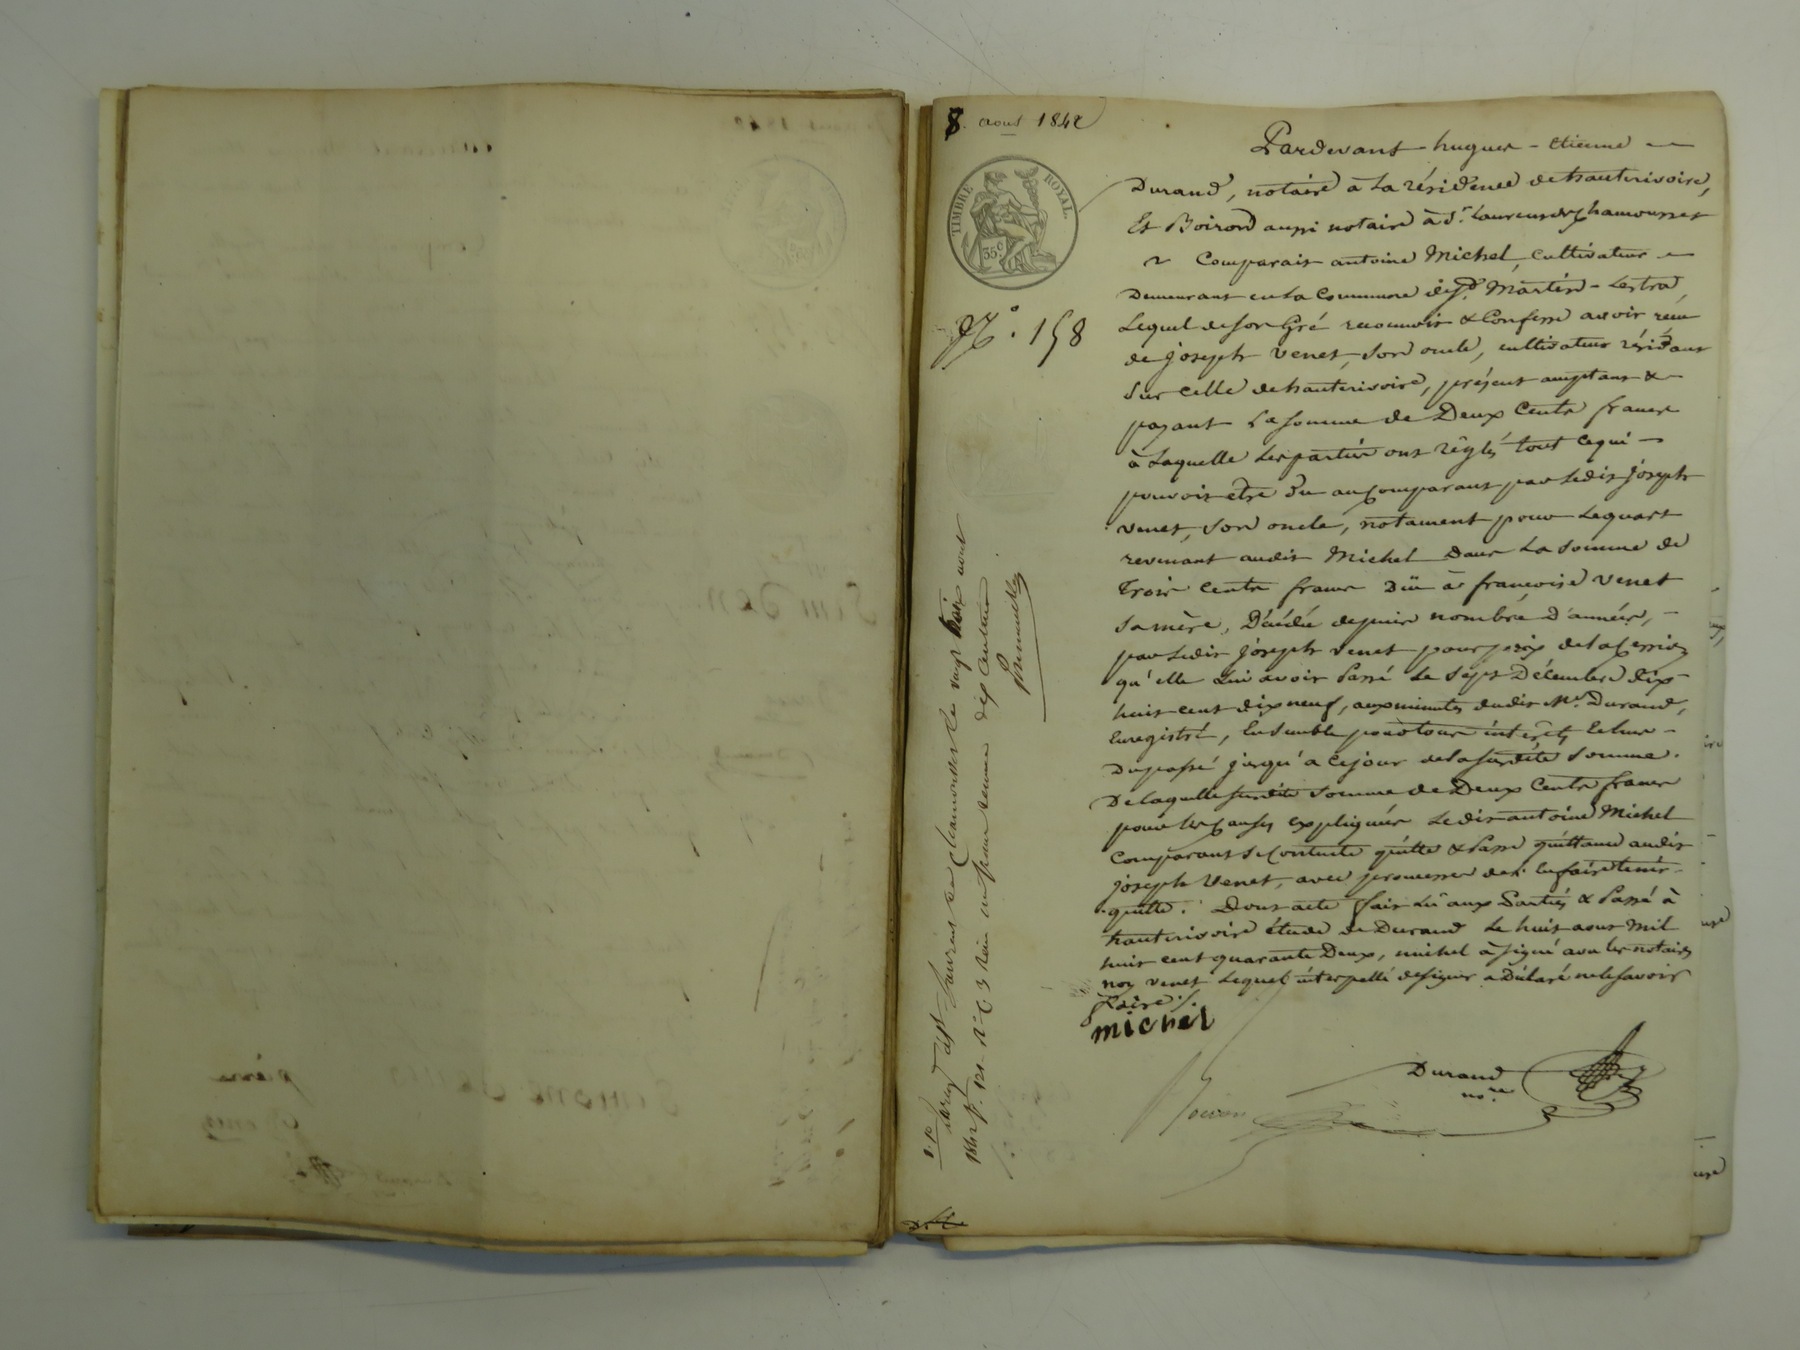 8. aout 1842
TIMBRE ROYAL.
35 c.
N.° 158
Pardevant hugues - etienne
Durand, notaire à La résidence de hauterivoire,
Et Boiron aussi notaire à St. Laurent de Chamousset
Comparait antoine Michel, Cultivateur
Demeurant en La Commune de St. Martin - Lestra,
Lequel de son Gré reconnoit & Confesse avoir reçu
de joseph Venet, son oncle, cultivateur résidant
sur celle de hauterivoire, présent acceptant &
payant La somme de Deux Cents francs
à Laquelle Les parties ont réglés tout ce qui
pouvoit être dû au Comparant par Ledit joseph
venet, son oncle, notament pour Le quart
revenant audit Michel dans La somme de
Trois Cents francs Dûe à françoise Venet
sa mère, Décédée depuis nombre d'années,
par Ledit joseph venet pour prix de la Cession
qu'elle Lui avoit Passé Le sept Décembre dix
huit cent dix neuf, aux minutes dudit Me. Durand,
Enregistré, Ensemble pour tous intérêts échus
Du passé jusqu'à ce jour de la susdite somme.
De laquelle susdite somme de Deux Cents francs
pour Les Causes expliquées Ledit antoine Michel
Comparant se Contente quitte & Passe quittance audit
joseph Venet, avec promesse de l'en faire tenir
quitte. Dont acte fait Lu aux Parties & Passé à
hauterivoire étude de Durand Le huit aout Mil
huit cent quarante Deux, michel à signé avec les notaires
non venet Lequel interpellé de signer a Déclaré ne le savoir
faire ./.
michel
Durand
nore
Boiron
Enreg. à St. Laurent de Chamousset le vingt trois aout
1842 f. 121 R. C. 3 Reçu un franc décime dix centimes